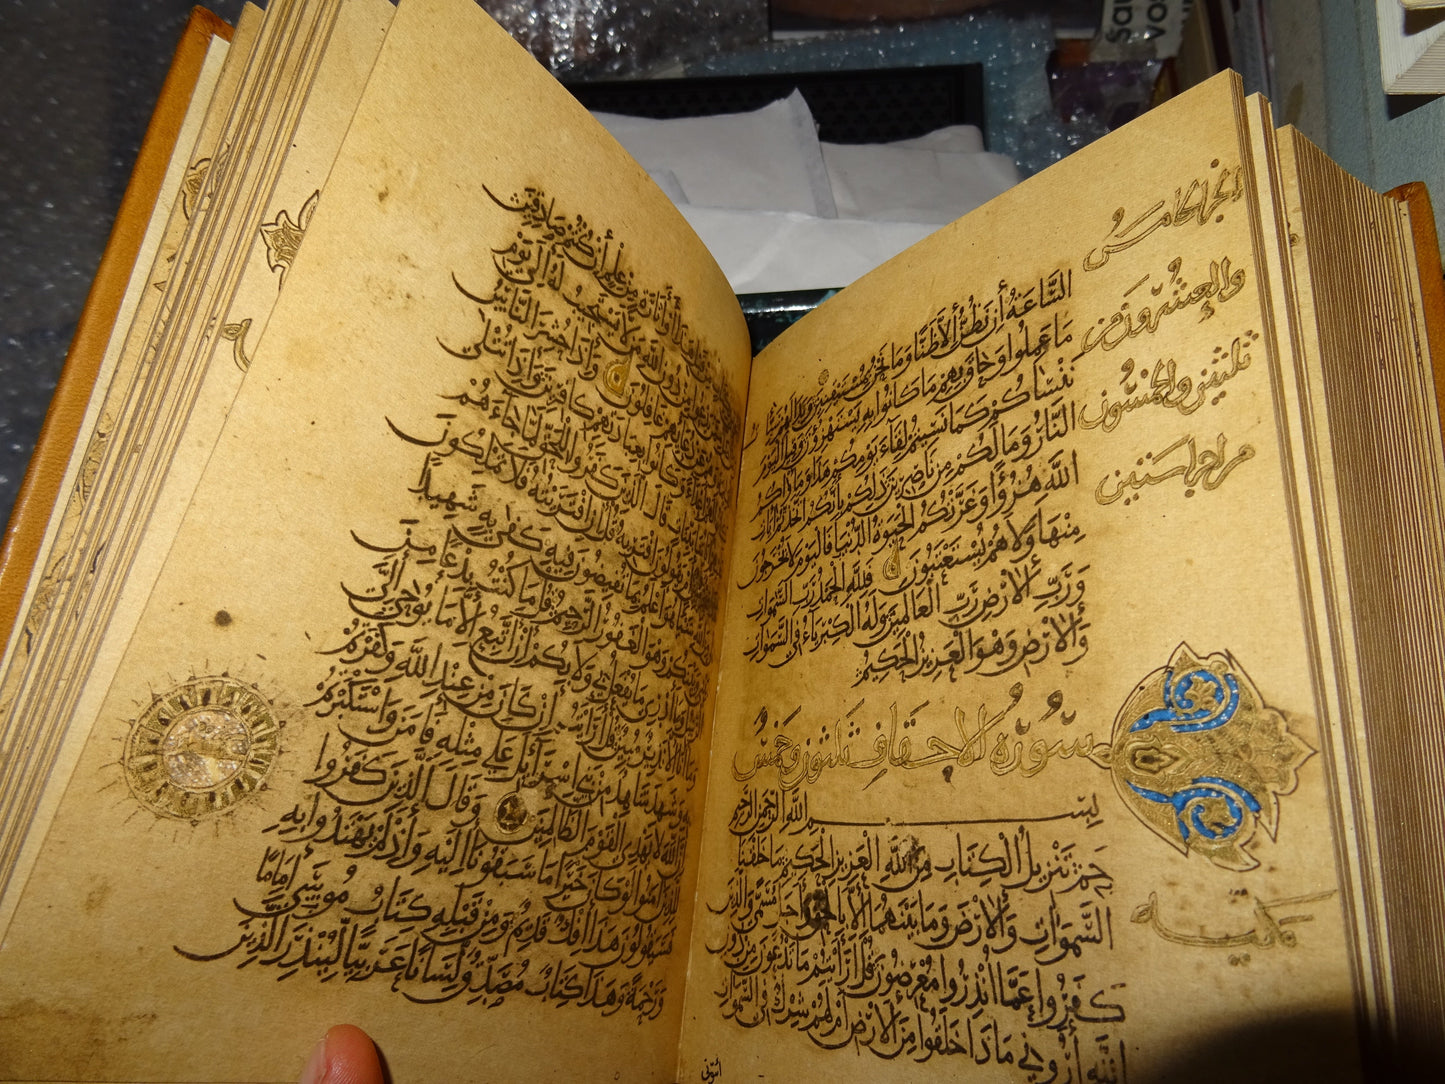 الجزء الخامس
والعشرون من
ثلثين والخمسون
من اجزاء ستين
السَّاعَةُ إِن نَظُنُّ إِلَّا ظَنًّا وَمَا نَحْنُ بِمُسْتَيْقِنِينَ وَبَدَا لَهُمْ سَيِّئَاتُ
مَا عَمِلُوا وَحَاقَ بِهِمْ مَا كَانُوا بِهِ يَسْتَهْزِءُونَ وَقِيلَ الْيَوْمَ
نَنْسَاكُمْ كَمَا نَسِيتُمْ لِقَاءَ يَوْمِكُمْ هَذَا وَمَأْوَاكُمُ
النَّارُ وَمَا لَكُمْ مِنْ نَاصِرِينَ ذَلِكُمْ بِأَنَّكُمُ اتَّخَذْتُمْ آيَاتِ
اللَّهِ هُزُوًا وَغَرَّتْكُمُ الْحَيَوةُ الدُّنْيَا فَالْيَوْمَ لَا يُخْرَجُونَ
مِنْهَا وَلَا هُمْ يُسْتَعْتَبُونَ فَلِلَّهِ الْحَمْدُ رَبِّ السَّمَوَاتِ
وَرَبِّ الْأَرْضِ رَبِّ الْعَالَمِينَ وَلَهُ الْكِبْرِيَاءُ فِي السَّمَوَاتِ
وَالْأَرْضِ وَهُوَ الْعَزِيزُ الْحَكِيمُ
سُورَةُ الاحقاف ثلثون وخمس
بِسْمِ اللَّهِ الرَّحْمَنِ الرَّحِيمِ
حم تَنْزِيلُ الْكِتَابِ مِنَ اللَّهِ الْعَزِيزِ الْحَكِيمِ مَا خَلَقْنَا
السَّمَوَاتِ وَالْأَرْضَ وَمَا بَيْنَهُمَا إِلَّا بِالْحَقِّ وَأَجَلٍ مُسَمًّى وَالَّذِينَ
كَفَرُوا عَمَّا أُنْذِرُوا مُعْرِضُونَ قُلْ أَرَأَيْتُمْ مَا تَدْعُونَ مِنْ دُونِ
اللَّهِ أَرُونِي مَاذَا خَلَقُوا مِنَ الْأَرْضِ أَمْ لَهُمْ شِرْكٌ فِي السَّمَوَاتِ
مكية
ائتوني
أَوْ أَثَارَةٍ مِنْ عِلْمٍ إِنْ كُنْتُمْ صَادِقِينَ
مِنْ دُونِ اللَّهِ مَنْ لَا يَسْتَجِيبُ لَهُ إِلَى يَوْمِ
غَافِلُونَ وَإِذَا حُشِرَ النَّاسُ
وَكَانُوا بِعِبَادَتِهِمْ كَافِرِينَ وَإِذَا تُتْلَى
قَالَ الَّذِينَ كَفَرُوا لِلْحَقِّ لَمَّا جَاءَهُمْ
يَقُولُونَ افْتَرَاهُ قُلْ إِنِ افْتَرَيْتُهُ فَلَا تَمْلِكُونَ
هُوَ أَعْلَمُ بِمَا تُفِيضُونَ فِيهِ كَفَى بِهِ شَهِيدًا
وَهُوَ الْغَفُورُ الرَّحِيمُ قُلْ مَا كُنْتُ بِدْعًا مِنَ
وَمَا أَدْرِي مَا يُفْعَلُ بِي وَلَا بِكُمْ إِنْ أَتَّبِعُ إِلَّا مَا يُوحَى إِلَيَّ
وَمَا أَنَا إِلَّا نَذِيرٌ مُبِينٌ قُلْ أَرَأَيْتُمْ إِنْ كَانَ مِنْ عِنْدِ اللَّهِ وَكَفَرْتُمْ
بِهِ وَشَهِدَ شَاهِدٌ مِنْ بَنِي إِسْرَائِيلَ عَلَى مِثْلِهِ فَآمَنَ وَاسْتَكْبَرْتُمْ
إِنَّ اللَّهَ لَا يَهْدِي الْقَوْمَ الظَّالِمِينَ وَقَالَ الَّذِينَ كَفَرُوا
لِلَّذِينَ آمَنُوا لَوْ كَانَ خَيْرًا مَا سَبَقُونَا إِلَيْهِ وَإِذْ لَمْ يَهْتَدُوا بِهِ
فَسَيَقُولُونَ هَذَا إِفْكٌ قَدِيمٌ وَمِنْ قَبْلِهِ كِتَابُ مُوسَى إِمَامًا
وَرَحْمَةً وَهَذَا كِتَابٌ مُصَدِّقٌ لِسَانًا عَرَبِيًّا لِيُنْذِرَ الَّذِينَ